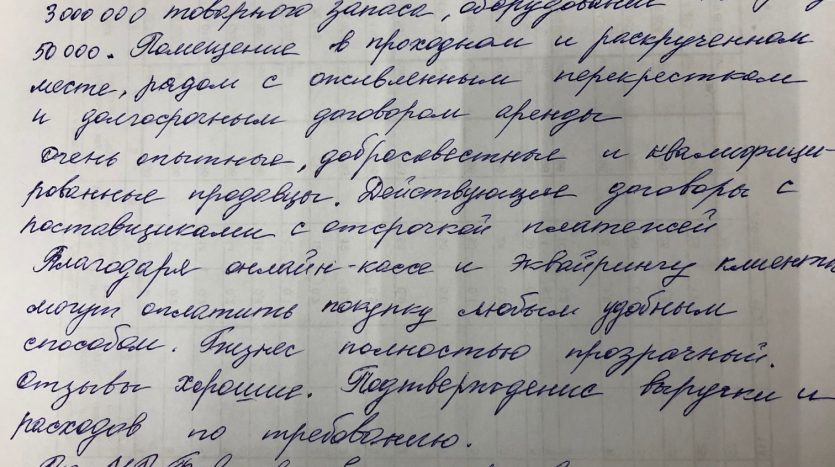 3000000 товарного запаса, оборудования
50000. Помещение в проходном и раскрученном
месте, рядом с оживленным перекрестком
и долгосрочным договором аренды
Очень опытные, добросовестные и квалифици-
рованные продавцы. Действующие договоры с
поставщиками с отсрочкой платежей
Благодаря онлайн-кассе и эквайрингу клиенты
могут оплатить покупку любым удобным
способом. Бизнес полностью прозрачный.
Отзывы хорошие. Подтверждение выручки и
расходов по требованию.